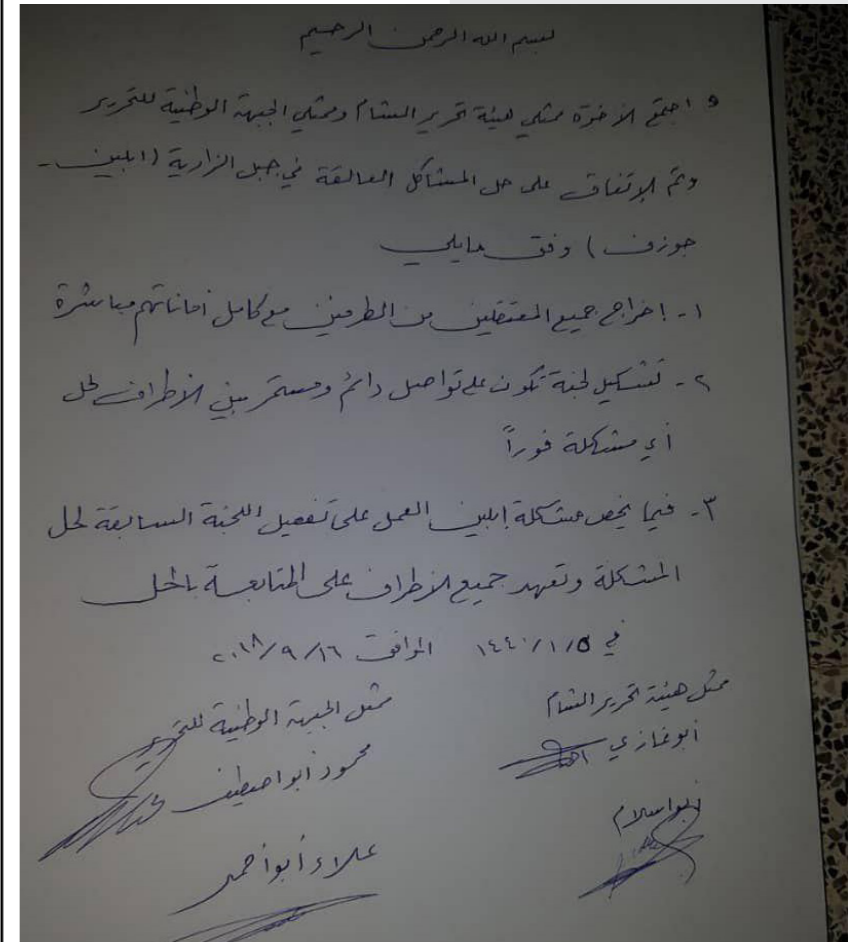 بسم الله الرحمن الرحيم
اجتمع الاخوة ممثلي هيئة تحرير الشام وممثلي الجبهة الوطنية للتحرير
وتم الإتفاق على حل المشاكل العالقة في جبل الزاوية (ابلين -
جوزف) وفق مايلي
١- إخراج جميع المعتقلين من الطرفين مع كامل أماناتهم مباشرة
٢- تشكيل لجنة تكون على تواصل دائم ومستمر بين الأطراف لحل
أي مشكلة فوراً
٣- فيما يخص مشكلة إبلين العمل على تفعيل اللجنة السابقة لحل
المشكلة وتعهد جميع الأطراف على المتابعة بالحل
في ١٤٤٠/١/٥ الموافق ٢٠١٨/٩/١٦
ممثل هيئة تحرير الشام
أبو غازي
أبو اسلام
ممثل الجبهة الوطنية للتحرير
محمود أبو
علاء أبو أحمد